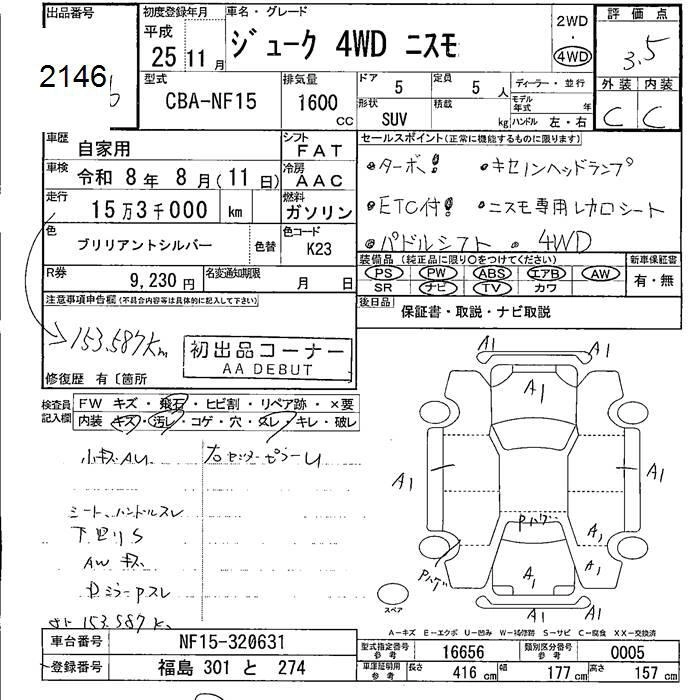 出品番号 初度登録年月 車名・グレード 2WD 評価点
平成
25 11月 ジューク 4WD ニスモ ・ 4WD 3.5
2146
型式 排気量 ドア 5 定員 5人 ディーラー・並行 外装 内装
CBA-NF15 1600 CC 形状 SUV 積載 kg モデル年式 年 ハンドル 左・右 C C
車歴 自家用 シフト FAT セールスポイント(正常に機能するものに限ります)
車検 令和 8年 8月(11日) 冷房 AAC ●ターボ! ●キセノンヘッドランプ
走行 15万3千000 km 燃料 ガソリン ●ETC付! ●ニスモ専用レカロシート
色 ブリリアントシルバー 色替 色コード K23 ●パドルシフト ●4WD
装備品(純正品に限り○をつけてください) 新車保証書
R券 9,230円 名変通知期限 月 日 PS PW ABS エアB AW 有・無
SR ナビ TV カワ
注意事項申告欄(不具合内容等は具体的に記入して下さい) 後日品 保証書・取説・ナビ取説
153.587km
初出品コーナー
AA DEBUT
修復歴 有〔箇所
検査員記入欄 FW キズ・飛石・ヒビ割・リペア跡・×要
内装 キズ・汚レ・コゲ・穴・スレ・キレ・破レ
A1 A1
A1
A1 A1
Pハゲ
A1
Pハゲ A1 A1
A1
小キズ A.U センターピラーU
シート、ハンドルスレ
下回りS
AW キズ
ミラーPスレ
153.587K
スペア
A-キズ E-エクボ U-凹み W-補修跡 S-サビ C-腐食 XX-交換済
車台番号 NF15-320631 型式指定番号 参考 16656 類別区分番号 参考 0005
登録番号 福島 301 と 274 車庫証明用 参考 長さ 416 cm 幅 177 cm 高さ 157 cm